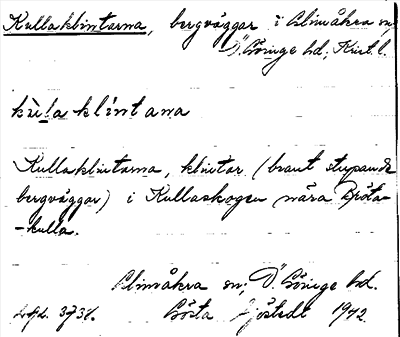 Kullaklintarna, bergväggar i Glimåkra sn,
Ö. Göinge hd; Krist. l.
kùl̲a klíntana
Kullaklintarna, klintar (brant stupande
bergväggar) i Kullaskogen nära Grösta-
-kulla.
Glimåkra sn; Ö. Göinge hd.
Gösta Sjöstedt 1942.